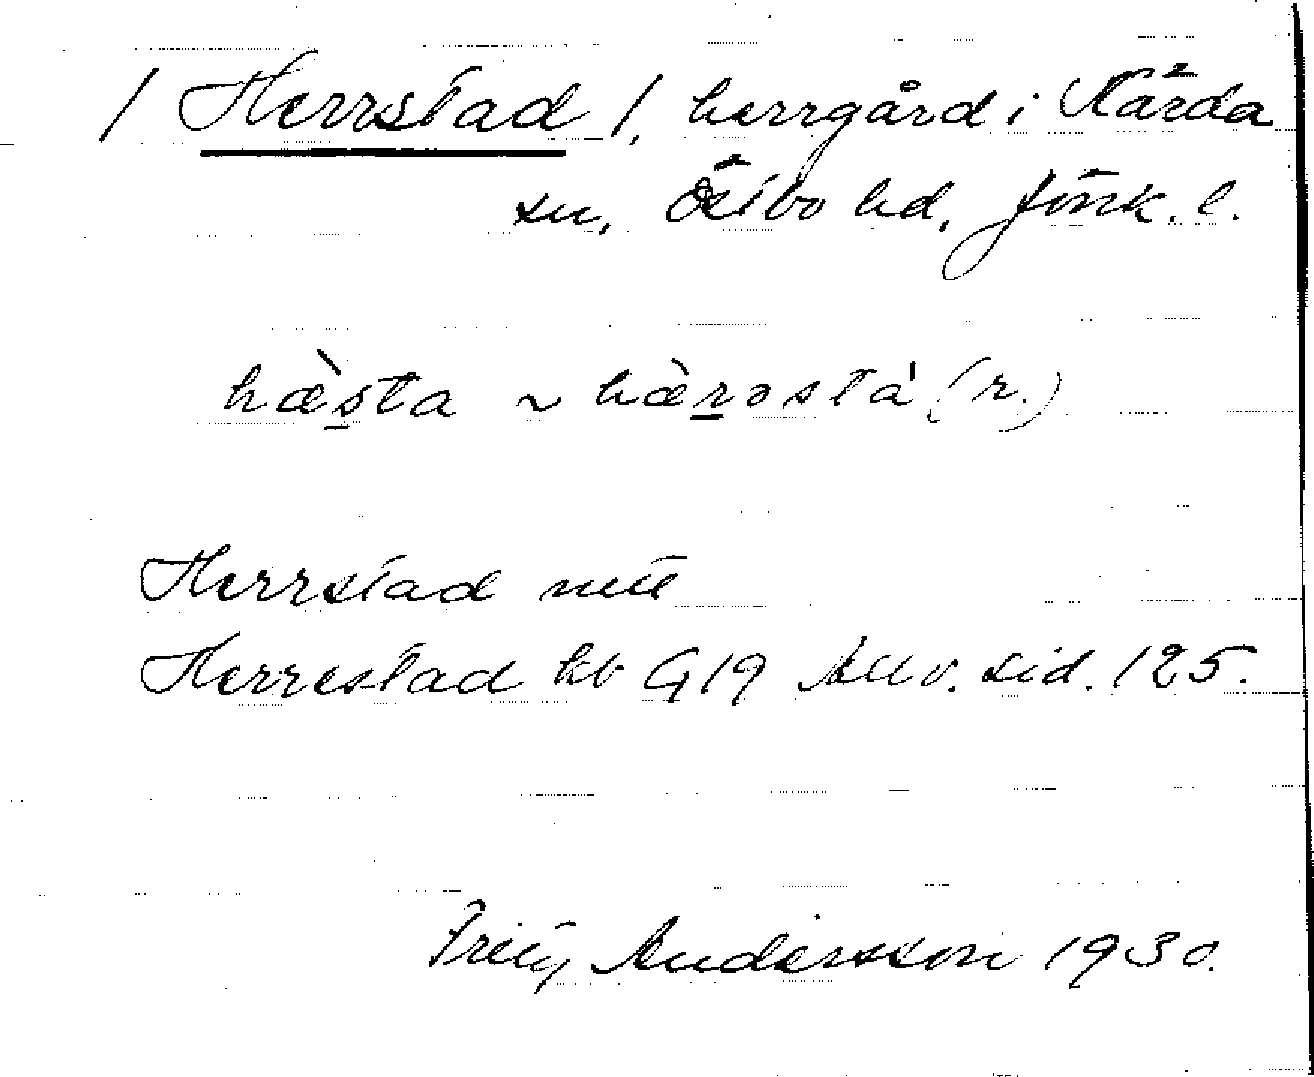 / Herrstad /, herrgård i Kärda
sn, Östbo hd, Jönk. l.
hæ̀sta ~ hæ̀rəstá (r.)
Herrstad
Herrestad kb G19 Allv. sid. 125.
Fritz Andersson 1930.